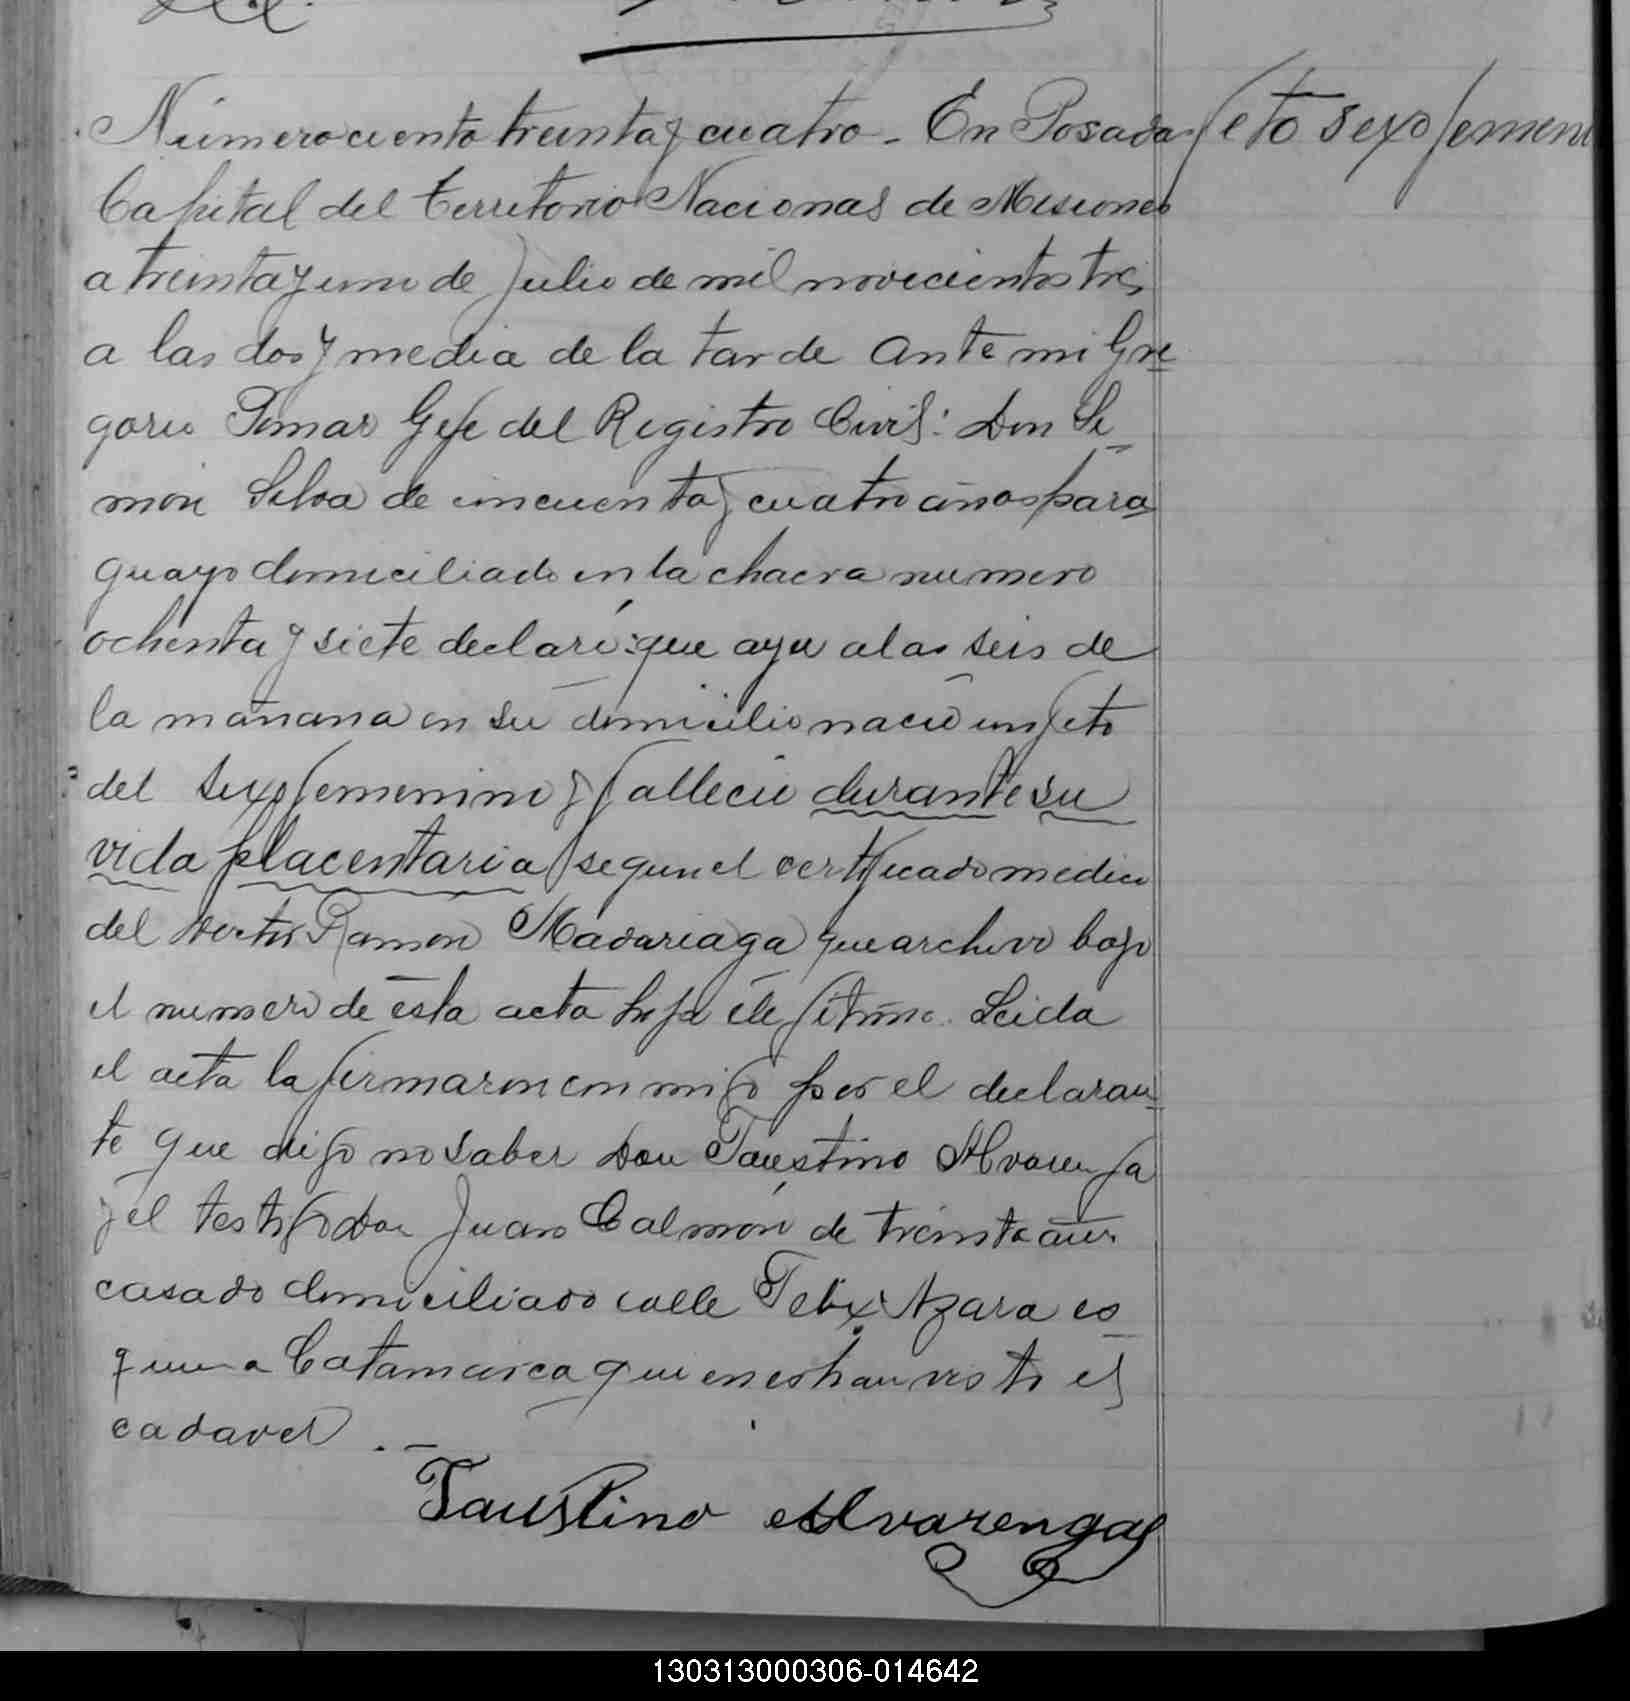 Número ciento treinta y cuatro - En Posadas
feto sexo femeni
Capital del Territorio Nacional de Misiones
a treinta y uno de Julio de mil novecientos tres
a las dos y media de la tarde ante mi Gre
gorio Pomar Gefe del Registro Civil: Don Si
mon Silva de cincuenta y cuatro años para
guayo domiciliado en la chacra numero
ochenta y siete declaró: que ayer a las seis de
la mañana en su domicilio nació un feto
del sexo femenino y falleció durante su
vida placentaria segun el certificado medico
del doctor Ramon Madariaga que archivo bajo
el numero de esta acta hija ilegitima. Leida
el acta la firmaron conmigo por el declaran
te que dijo no saber Don Faustino Alvarenga
y el testigo Don Juan Calmon de treinta años
casado domiciliado calle Felix Azara es
quina Catamarca quienes han visto el
cadaver . -
Faustino Alvarenga
130313000306-014642